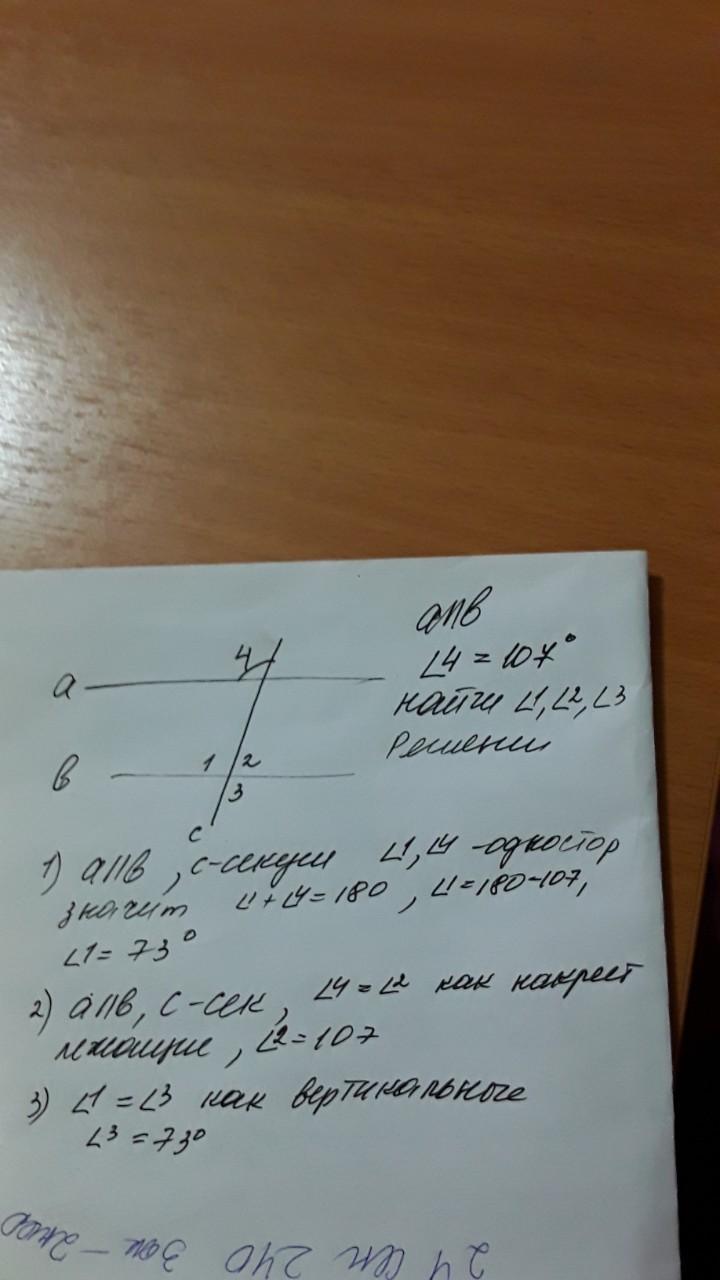 a||b
∠4 = 107°
найти ∠1, ∠2, ∠3
Решени
4
a
1 2
b
3
c
1) a||b, c-секущ ∠1, ∠4 -одностор
значит ∠1 + ∠4 = 180, ∠1 = 180-107,
∠1 = 73°
2) a||b, c-сек, ∠4 = ∠2 как накрест
лежащие, ∠2 = 107
3) ∠1 = ∠3 как вертикальные
∠3 = 73°
24 240